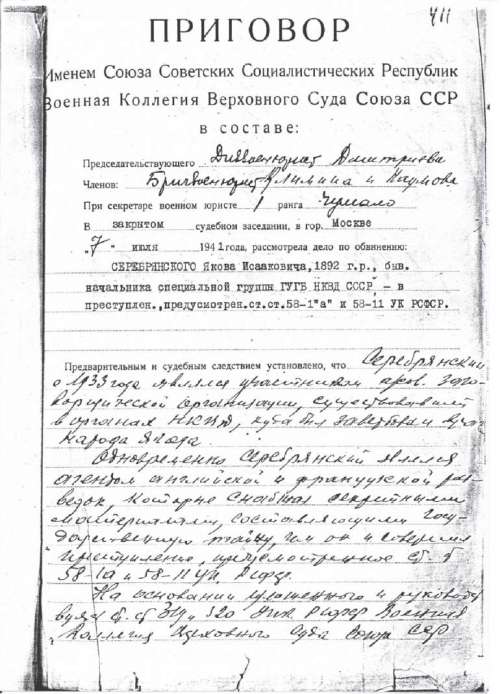 411
ПРИГОВОР
Именем Союза Советских Социалистических Республик
Военная Коллегия Верховного Суда Союза ССР
в составе:
Председательствующего Диввоенюрист Дмитриева
Членов: Бригвоенюрист Климина и Наумова
При секретаре военном юристе 1 ранга
В закрытом судебном заседании, в гор. Москве
„7" июля 1941 года, рассмотрела дело по обвинению:
СЕРЕБРЯНСКОГО Якова Исааковича, 1892 г.р., быв.
начальника специальной группы ГУГБ НКВД СССР, - в
преступлен., предусмотрен. ст.ст. 58-1"а" и 58-11 УК РСФСР.
Предварительным и судебным следствием установлено, что Серебрянский
с 1933 года являлся участником заго-
ворщической организации, существовавшей
в органах НКВД, куда был завербован врагом
народа Ягода
Одновременно Серебрянский являлся
агентом английской и французской раз-
ведок, которые снабжал секретными
материалами, составляющими госу-
дарственную тайну, чем он и совершил
преступление, предусмотренное ст. ст
58-1а и 58-11 УК РСФСР.
На основании изложенного и руковод
ст. ст 319 и 320 УПК РСФСР Военная
Коллегия Верховного Суда Союза ССР